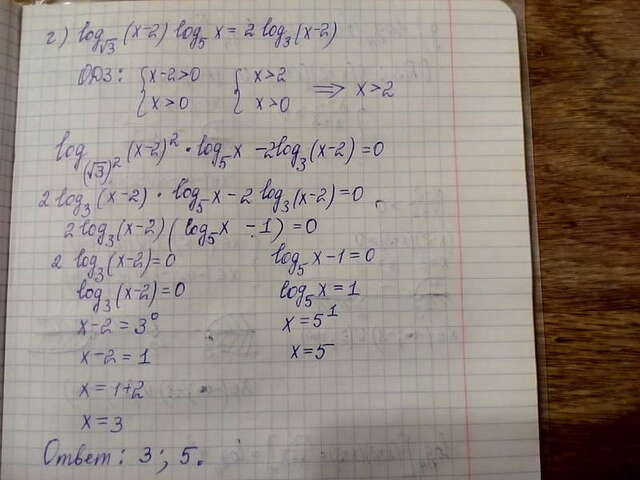 г) log√3 (x-2) log5 x = 2 log3 (x-2)
ОДЗ: { x-2>0 { x>2 ⟹ x>2
x>0 x>0
log(√3)² (x-2)² · log5 x - 2log3 (x-2) = 0
2 log3 (x-2) · log5 x - 2 log3 (x-2) = 0
2 log3 (x-2) ( log5 x - 1) = 0
2 log3 (x-2) = 0 log5 x - 1 = 0
log3 (x-2) = 0 log5 x = 1
x-2 = 3⁰ x = 5¹
x-2 = 1 x = 5
x = 1+2
x = 3
Ответ: 3; 5.